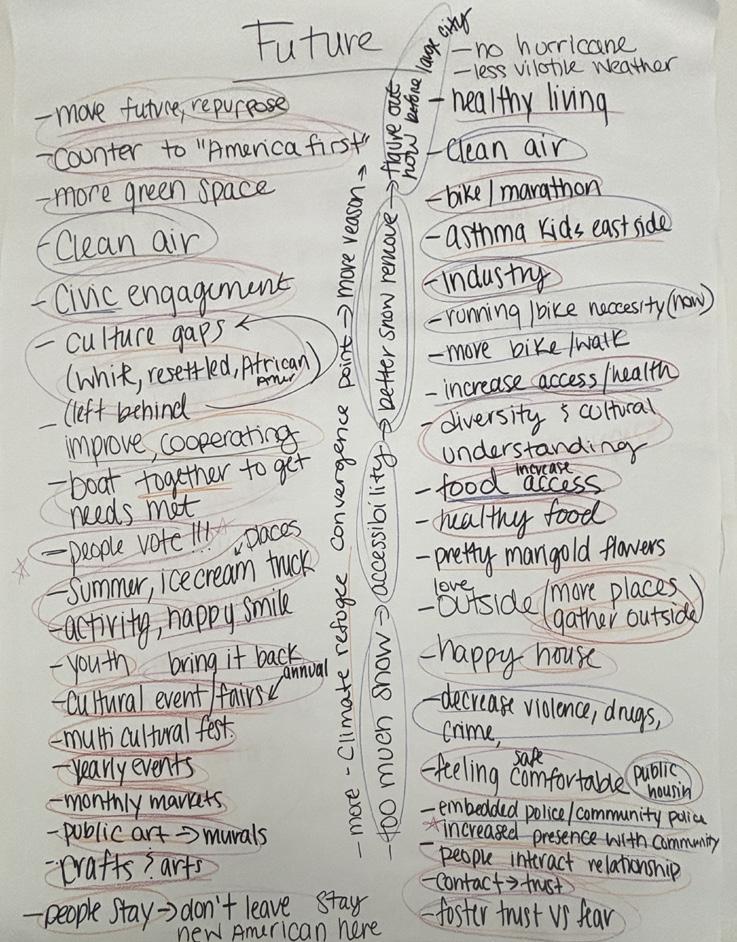 Future
- move future, repurpose
- counter to "America first"
- more green space
- Clean air
- Civic engagement
- culture gaps
(whit, resettled, African
Amer)
- (left behind
improve, cooperating
- boat together to get
needs met
- people vote !!!
places
- Summer, ice cream truck
- activity, happy smile
- youth bring it back
annual
- cultural event/fairs
- multi cultural fest.
- yearly events
- monthly markets
- public art → murals
- crafts & arts
- people stay → don't leave stay
new American here
- more - Climate refugee convergence point → more reason →
- too much snow → accessibility → better snow remove → figure out
now before large city
- no hurricane
- less vilotile weather
- healthy living
- clean air
- bike/marathon
- asthma kids east side
- Industry
- running/bike neccesity (now)
- more bike/walk
- increase access/health
- diversity & cultural
understanding
increase
- food access
- healthy food
- pretty marigold flowers
love
- outside (more places
gather outside)
- happy house
- decrease violence, drugs,
crime,
safe
- feeling comfortable public
housin
- embedded police/community police
- increased presence with community
people interact relationship
- contact → trust
- foster trust vs fear